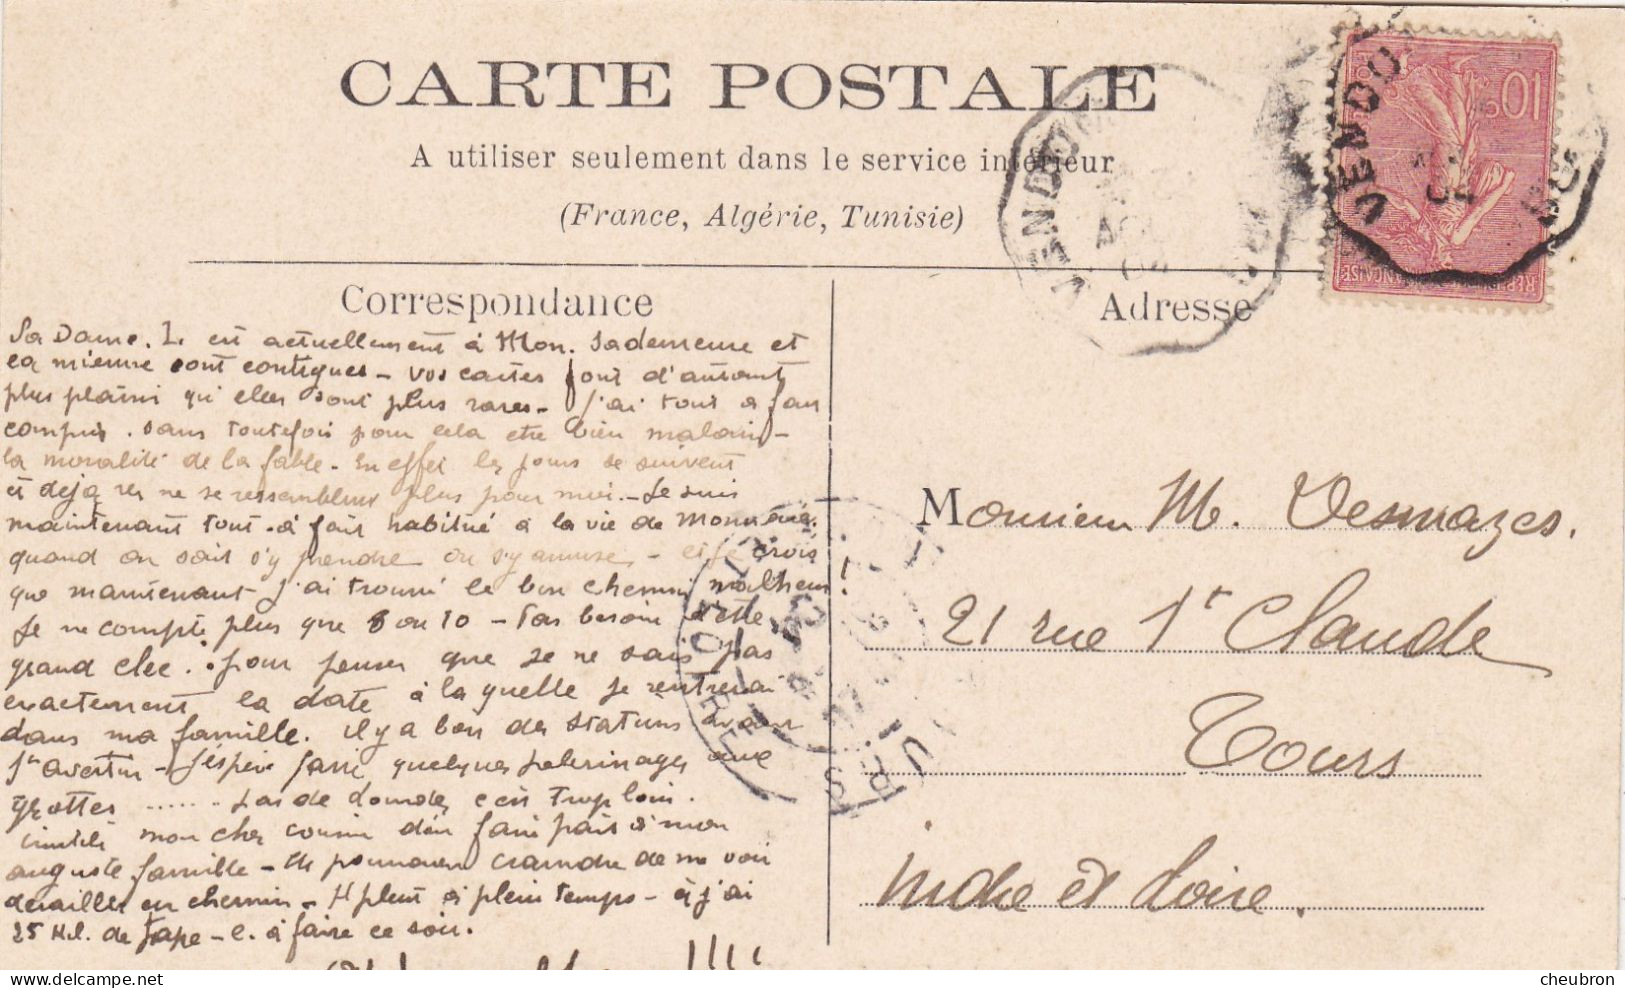 CARTE POSTALE
A utiliser seulement dans le service intérieur
(France, Algérie, Tunisie)
VENDÔM
VENDO
10
REPUBLIQUE FRANÇAISE
Correspondance
Adresse
Sa Dame. L. est actuellement à Mon. Sa demeure et
la mienne sont contigues - vos cartes font d'autant
plus plaisir qu'elles sont plus rares - J'ai tout à fait
compris. sans toutefois pour cela être bien malin -
la moralité de la fable - En effet les jours se suivent
et déjà ne se ressemblent plus pour moi. - Je suis
maintenant tout-à-fait habitué à la vie de
quand on sait s'y prendre on s'y amuse - et je crois
que maintenant j'ai trouvé le bon chemin malheur!
Je ne compte plus que 8 ou 10 - Pas besoin d'être
grand clec. pour penser que je ne sais pas
exactement la date à laquelle je rentrerai
dans ma famille. il y a bon des stations avant
St Avertin - J'espère faire quelques pelerinages aux
grottes ...... pas de Lourdes c'est trop loin.
inutile mon cher cousin d'en faire part à mon
auguste famille - Ils pourraient craindre de me voir
derailler en chemin - Il pleut à plein temps - et j'ai
25 Kil. de à faire ce soir.
Monsieur M. Desmazes.
21 rue St Claude
Tours
Indre et Loire.
cheubron